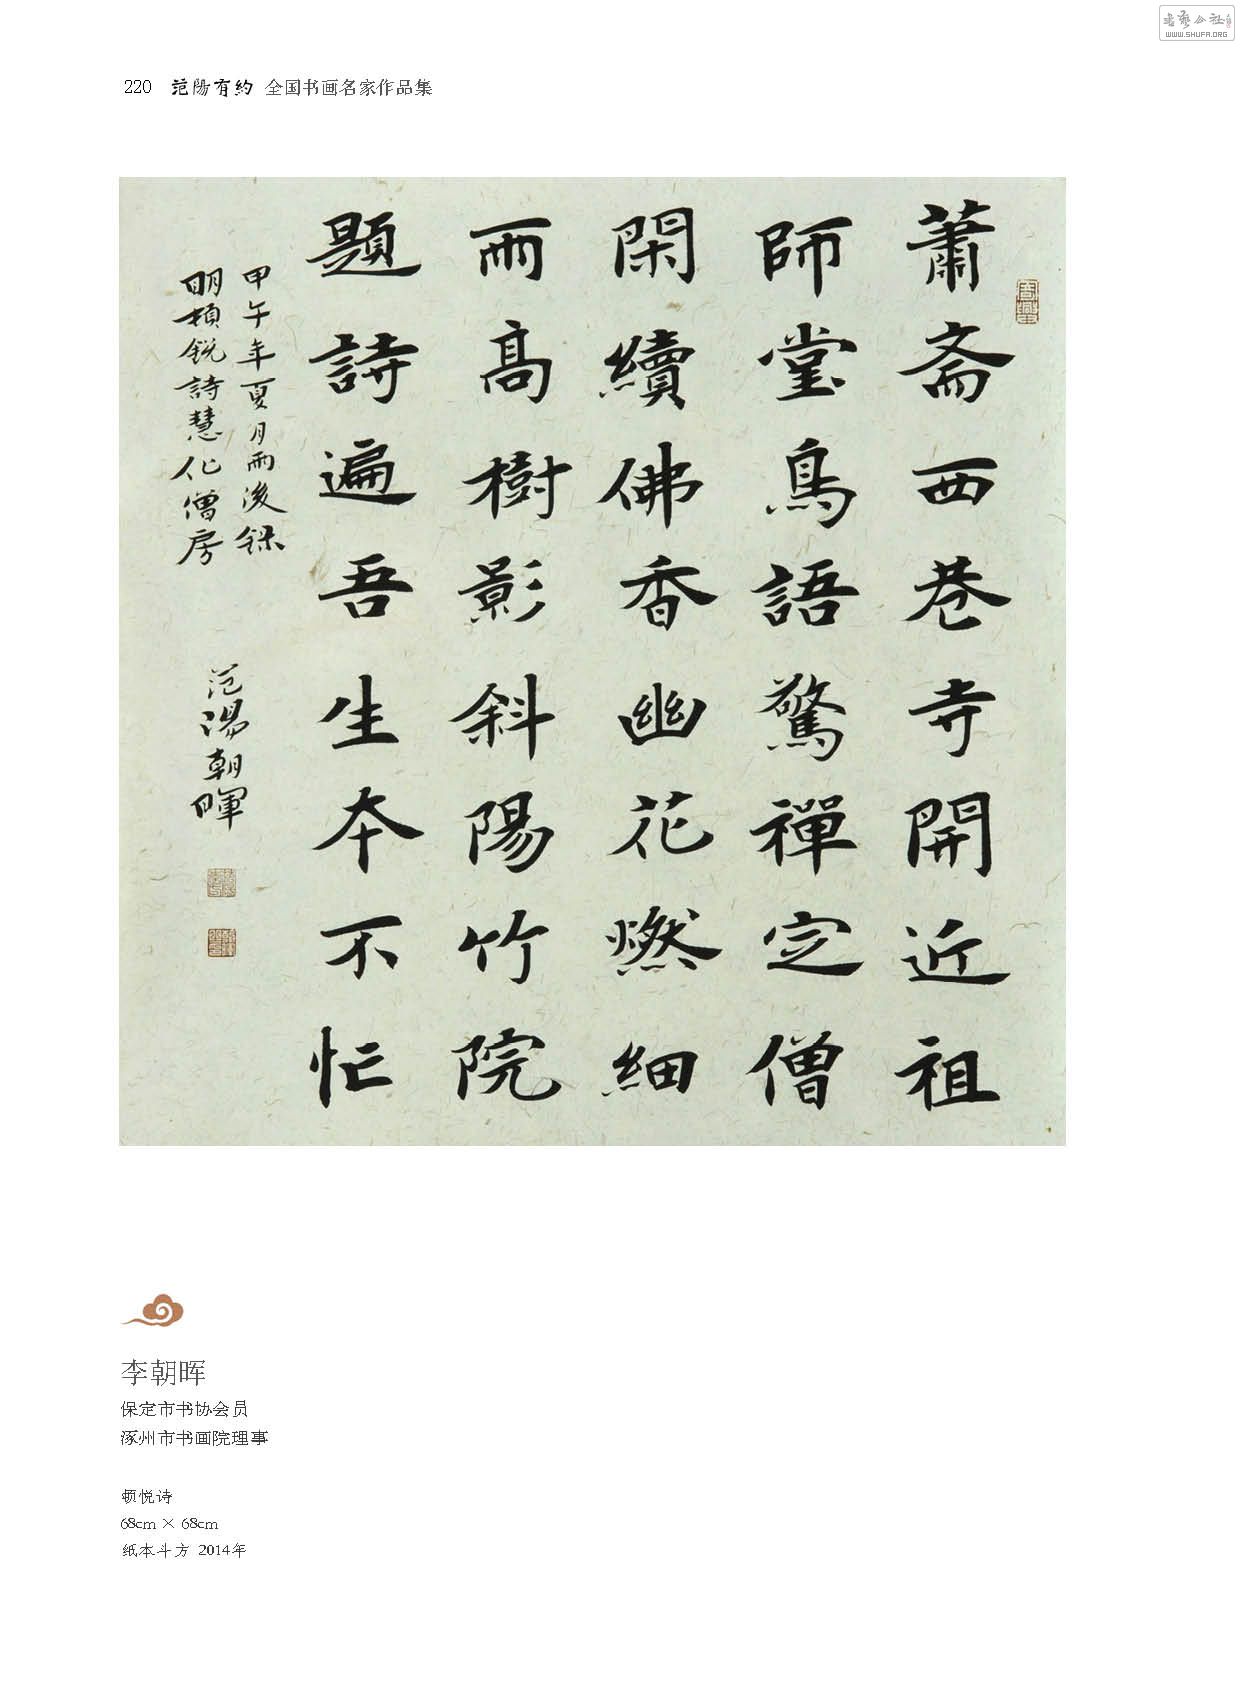 书艺公社
WWW.SHUFA.ORG
220 范陽有約 全国书画名家作品集
蕭斋西巷寺開近祖
師堂鳥語驚禪定僧
閑續佛香幽花燃細
雨高樹影斜陽竹院
題詩遍吾生本不忙
甲午年夏月雨後錄
明頓銳詩慧化僧房
范陽朝暉
李朝晖
保定市书协会员
涿州市书画院理事
顿悦诗
68cm × 68cm
纸本斗方 2014年